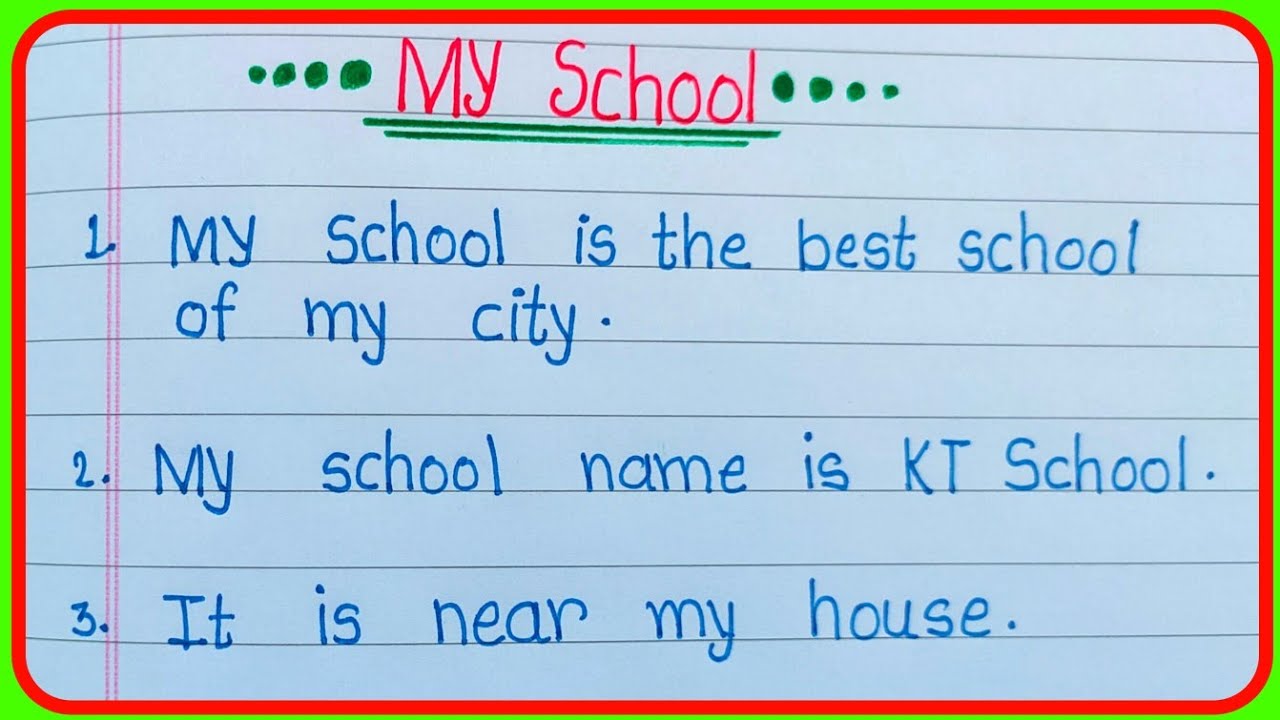 My School
1. My School is the best school
of my city.
2. My school name is KT School.
3. It is near my house.